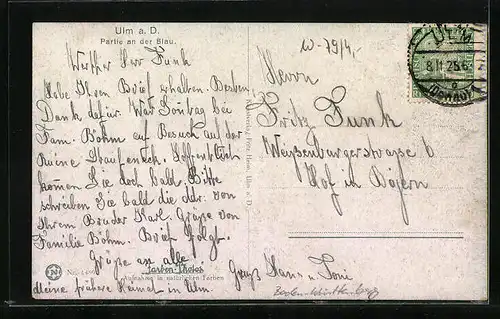 Ulm a. D.
Partie an der Blau.
Werther Herr Funk
Habe Ihren Brief erhalten. Besten
Dank dafür. War Sontag bei
Fam. Böhm auf Besuch auf der
Ruine Staufeneck. Hoffentlich
können Sie doch bald. Bitte
schreiben Sie bald die Adr. von
Ihrem Bruder Karl. Grüße von
Familie Böhm. Brief folgt.
Grüße an alle
Farben-Photos
Aufnahme in natürlichen Farben
Meine frühere Heimat in Ulm.
Gruß Hans u. Toni
W-79/4,-
ULM
8.11.25.6
(Donau)
Herrn
Fritz Funk
Weissenburgerstrasse 6
Hof in Bayern
Baden-Württemberg